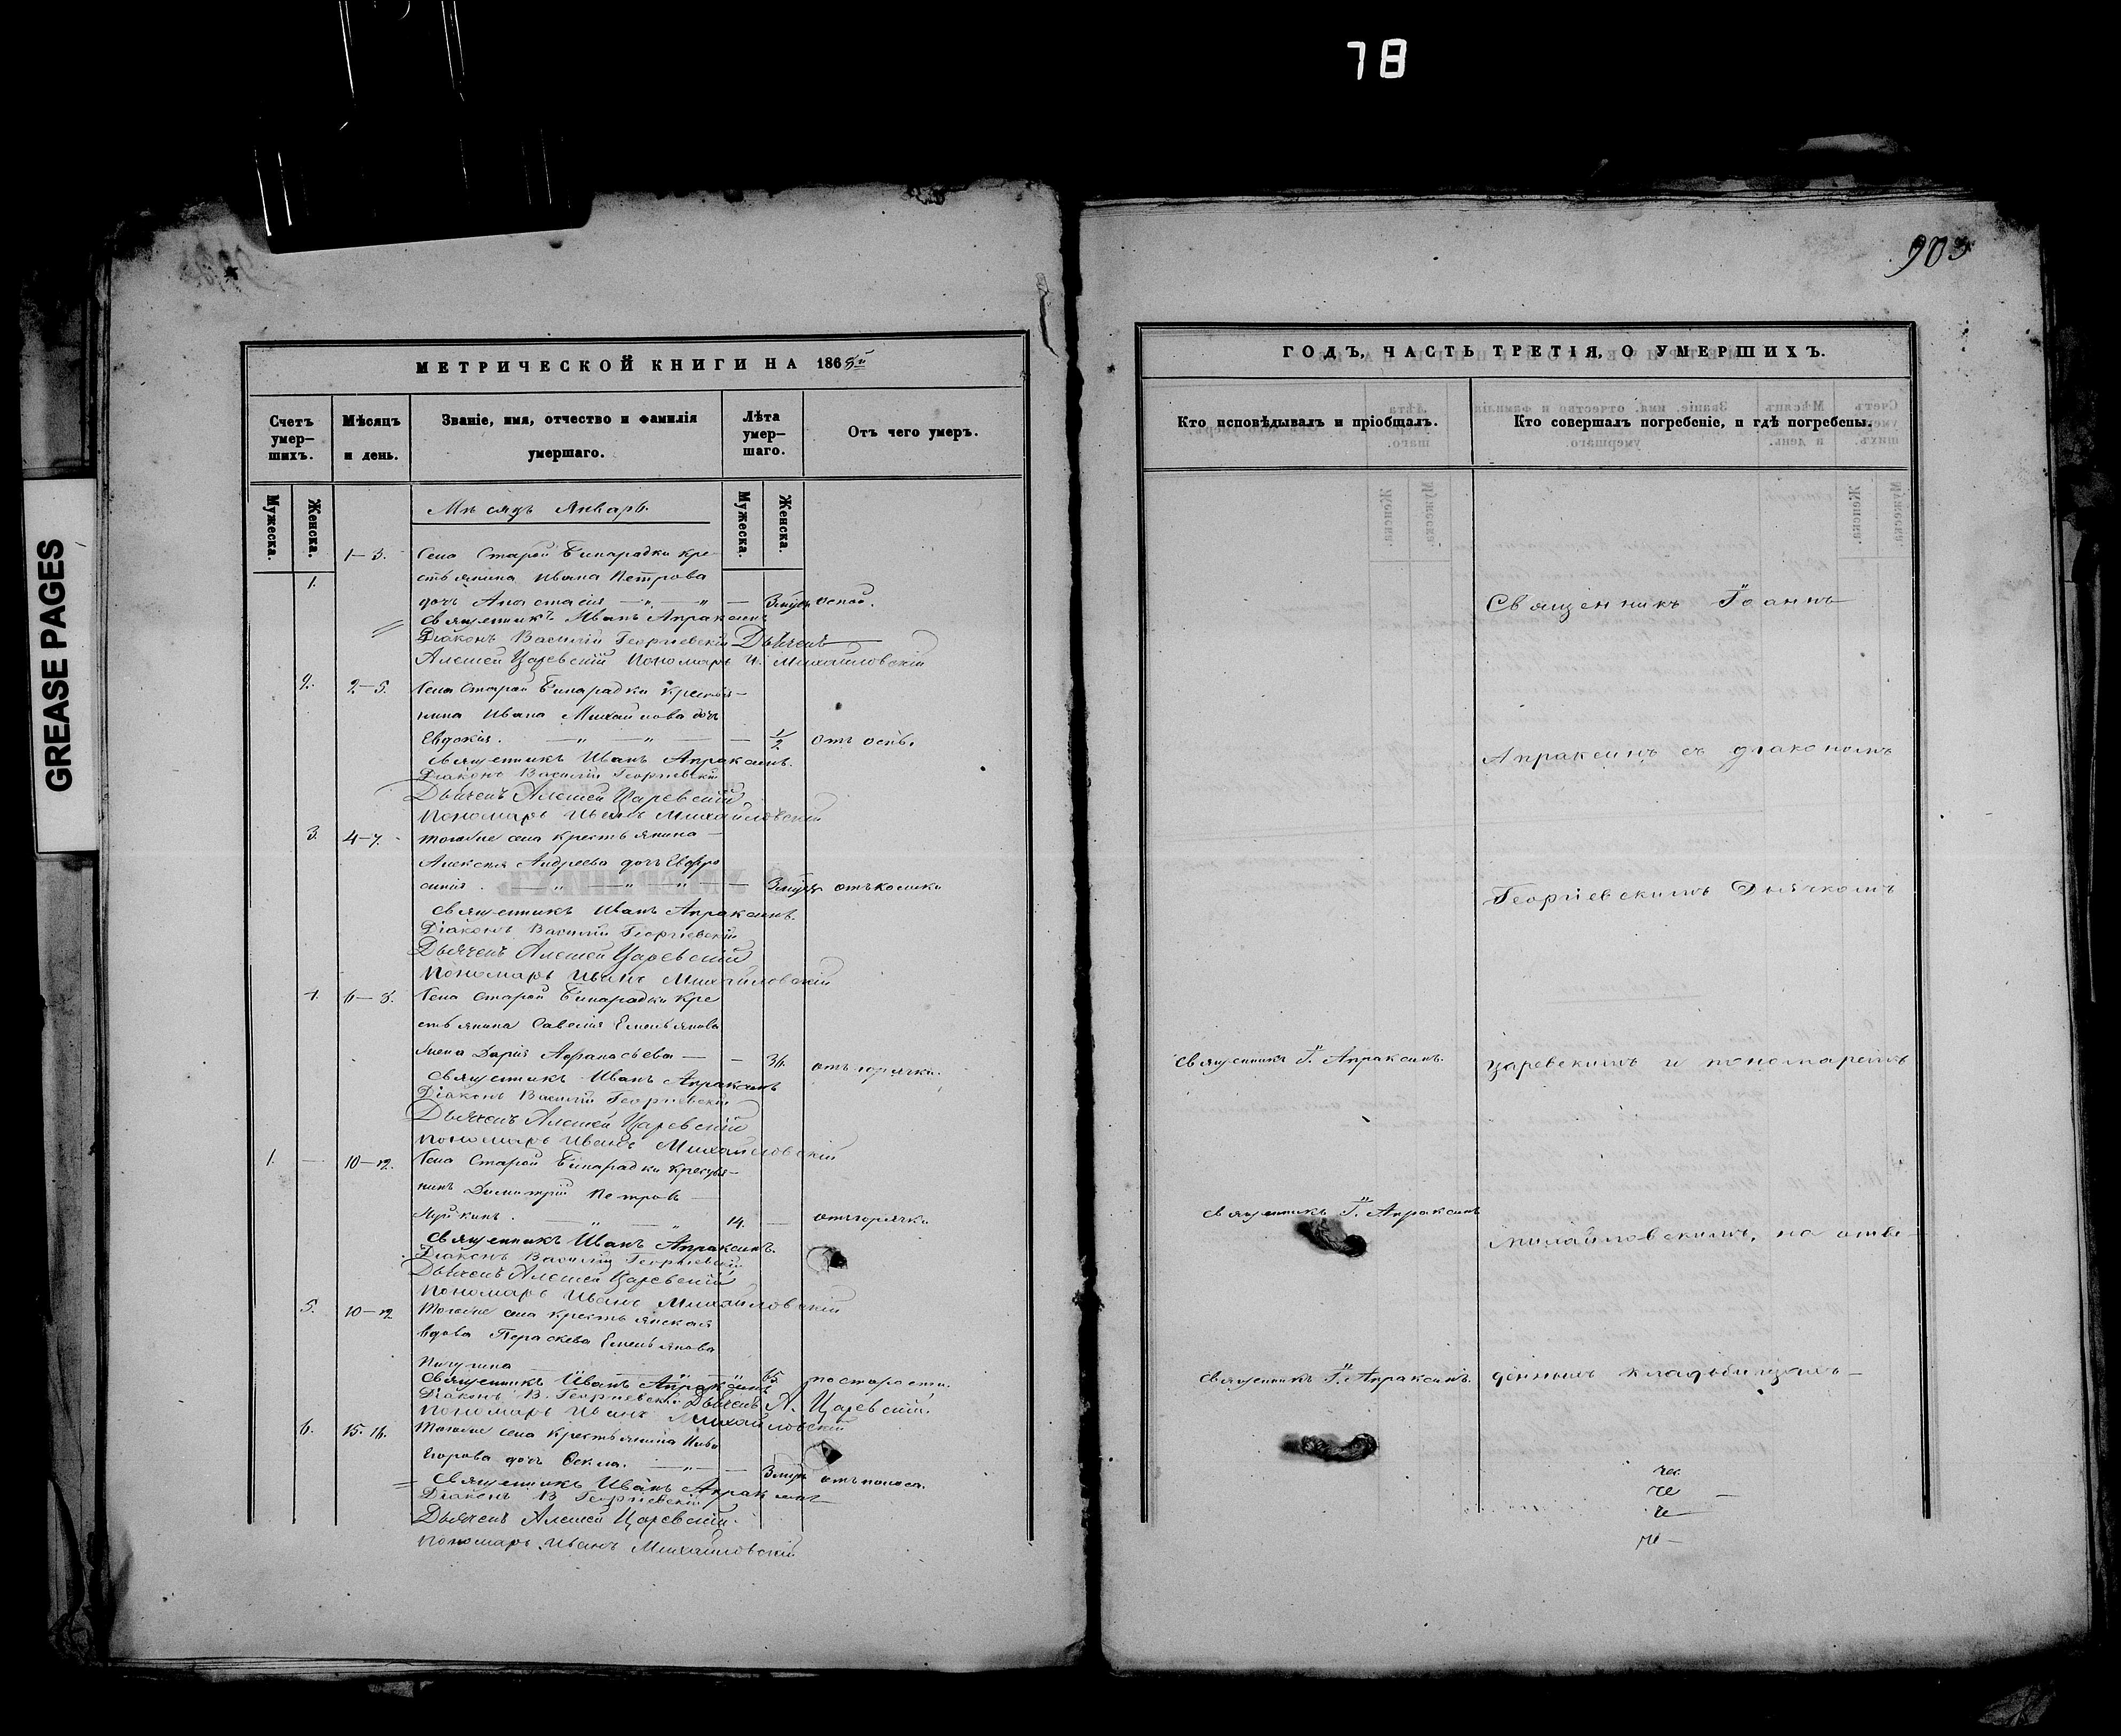 78
GREASE PAGES
903
МЕТРИЧЕСКОЙ КНИГИ НА 1865й
Счетъ умер-
шихъ.
Мѣсяцъ
и день.
Званіе, имя, отчество и фамилія
умершаго.
Лѣта
умер-
шаго.
Отъ чего умеръ.
Мужеска.
Женска.
Мужеска.
Женска.
Мѣсяцъ Январь.
1. 1–3. Села Старой Бинарадки кре-
стьянина Ивана Петрова
дочь Анастасія — „ — „ — оспой.
Священникъ Иванъ Апраксинъ
Діаконъ Василій Георгіевскій Дьячекъ
Алексей Царевскій Пономарь И. Михайловскій
2. 2–5. Села Старой Бинарадки крестья-
нина Ивана Михайлова дочь
Евдокія. — „ — „ — 1/2 отъ оспы.
Священникъ Иванъ Апраксинъ.
Діаконъ Василій Георгіевскій
Дьячекъ Алексей Царевскій
Пономарь Иванъ Михайловскій
3. 4–7. Тогоже села крестьянина
Алексея Андреева дочь Евфро
синія. — „ — „ — „ —
Священникъ Иванъ Апраксинъ.
Діаконъ Василій Георгіевскій
Дьячекъ Алексей Царевскій
Пономарь Иванъ Михайловскій
4. 6–8. Села Старой Бинарадки кре
стьянина Савелія Емельянова
жена Дарія Афанасьева — — 36. отъ горячки.
Священникъ Иванъ Апраксинъ
Діаконъ Василій Георгіевскій
Дьячекъ Алексей Царевскій
Пономарь Иванъ Михайловскій
1. — 10–12. Села Старой Бинарадки крестья-
нинъ Димитрій Петровъ
— „ — „ 14. — отъ горячки
Священникъ Иванъ Апраксинъ.
Діаконъ Василій Георгіевскій
Дьячекъ Алексей Царевскій
Пономарь Иванъ Михайловскій
5. 10–12 Тогоже села крестьянская
вдова Параскева Емельянова
Пичугина 65. по старости.
Священникъ Иванъ Апраксинъ
Діаконъ В. Георгіевскій Дьячекъ А. Царевскій.
Пономарь Иванъ Михайловскій
6. 15. 16. Тогоже села крестьянина
Егорова дочь Фекла. — „ — — отъ поноса.
Священникъ Иванъ Апраксинъ
Діаконъ В Георгіевскій
Дьячекъ Алексей Царевскій.
Пономарь Иванъ Михайловскій
ГОДЪ, ЧАСТЬ ТРЕТІЯ, О УМЕРШИХЪ.
Кто исповѣдывалъ и пріобщалъ.
Кто совершалъ погребеніе, и гдѣ погребены.
Священникъ Іоаннъ
Апраксинъ съ діакономъ
Георгіевскимъ Дьячкомъ
Священникъ І. Апраксинъ.
Царевскимъ и пономаремъ
Священникъ І. Апраксинъ
Михайловскимъ, на отве-
Священникъ І. Апраксинъ.
денномъ кладьбищахъ —